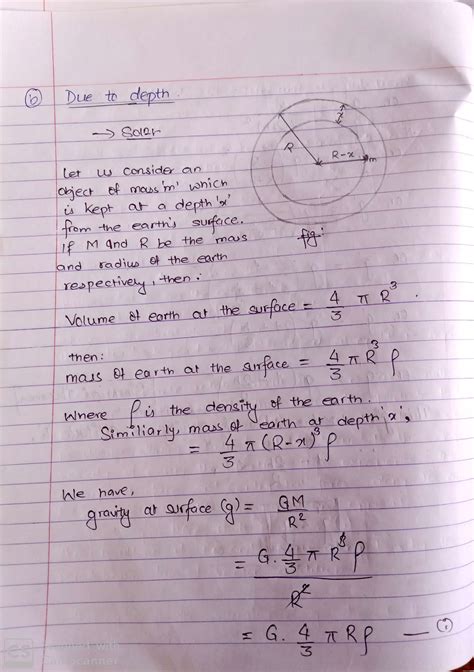 (b) Due to depth.
→ Soln
Let us consider an
object of mass 'm' which
is kept at a depth 'x'
from the earth's surface.
If M and R be the mass
and radius of the earth
respectively, then:
R
x
R-x
m
fig:
Volume of earth at the surface = 4/3 π R³.
then:
mass of earth at the surface = 4/3 π R³ ρ
Where ρ is the density of the earth.
Similiarly, mass of earth at depth 'x',
= 4/3 π (R-x)³ ρ
We have,
gravity at surface (g) = GM/R²
= G. 4/3 π R³ ρ / R²
= G. 4/3 π R ρ — (i)
CS